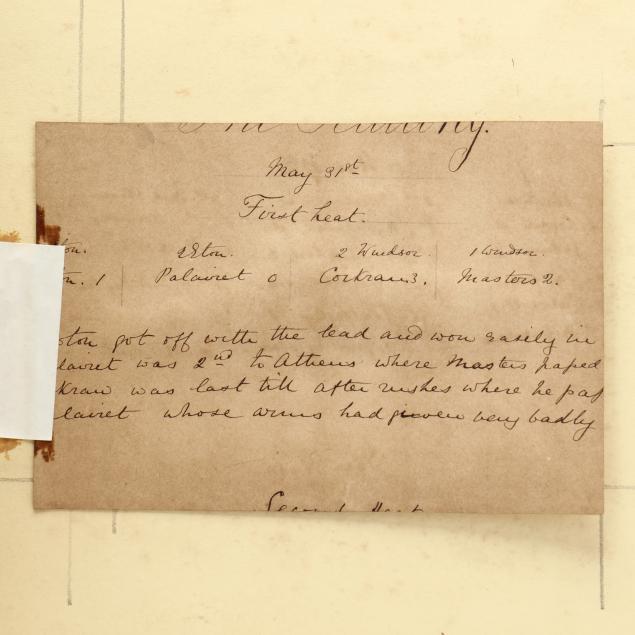 May 31st
First heat.
ton. 2 Eton. 2 Windsor. 1 Windsor.
n. 1 Palairet 0 Corkran 3. Masters 2.
oton got off with the lead and won easily in
lairet was 2nd to Athens where Masters paped
kran was last till after rushes where he pap
lairet whose arms had given very badly
Second Heat